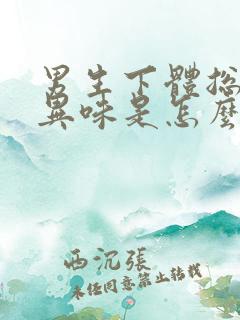 男生下體搃
異味是怎麼
西沉張
未经同意禁止转载